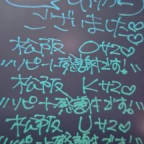 ございました♡
松阪 Oサン♡
リピート感謝です。
松阪 Kサン♡
リピート感謝です。
松阪 Uサン♡
リピート感謝です。